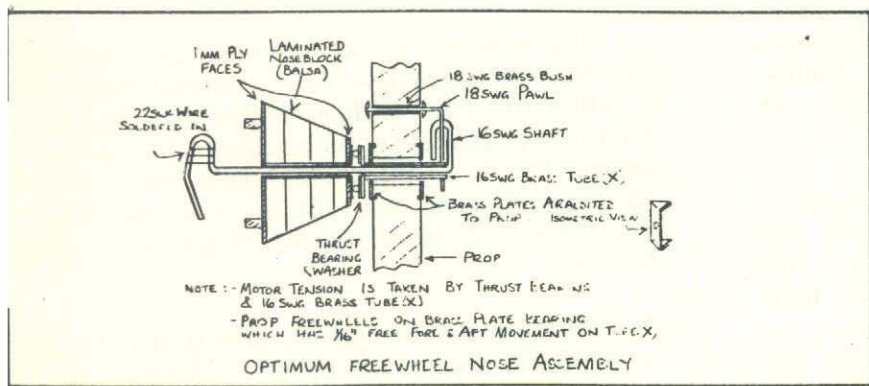 1MM PLY
FACES
LAMINATED
NOSEBLOCK
(BALSA)
22SWG WIRE
SOLDERED IN
18SWG BRASS BUSH
18SWG PAWL
16SWG SHAFT
16SWG BRASS TUBE(X)
BRASS PLATES ARALDITED
TO PROP
ISOMETRIC VIEW
THRUST
BEARING
& WASHER
PROP
NOTE :- MOTOR TENSION IS TAKEN BY THRUST BEARING
& 16SWG BRASS TUBE(X)
- PROP FREEWHEELS ON BRASS PLATE BEARING
WHICH HAS 1/16" FREE FORE & AFT MOVEMENT ON TUBE(X)
OPTIMUM FREEWHEEL NOSE ASSEMBLY